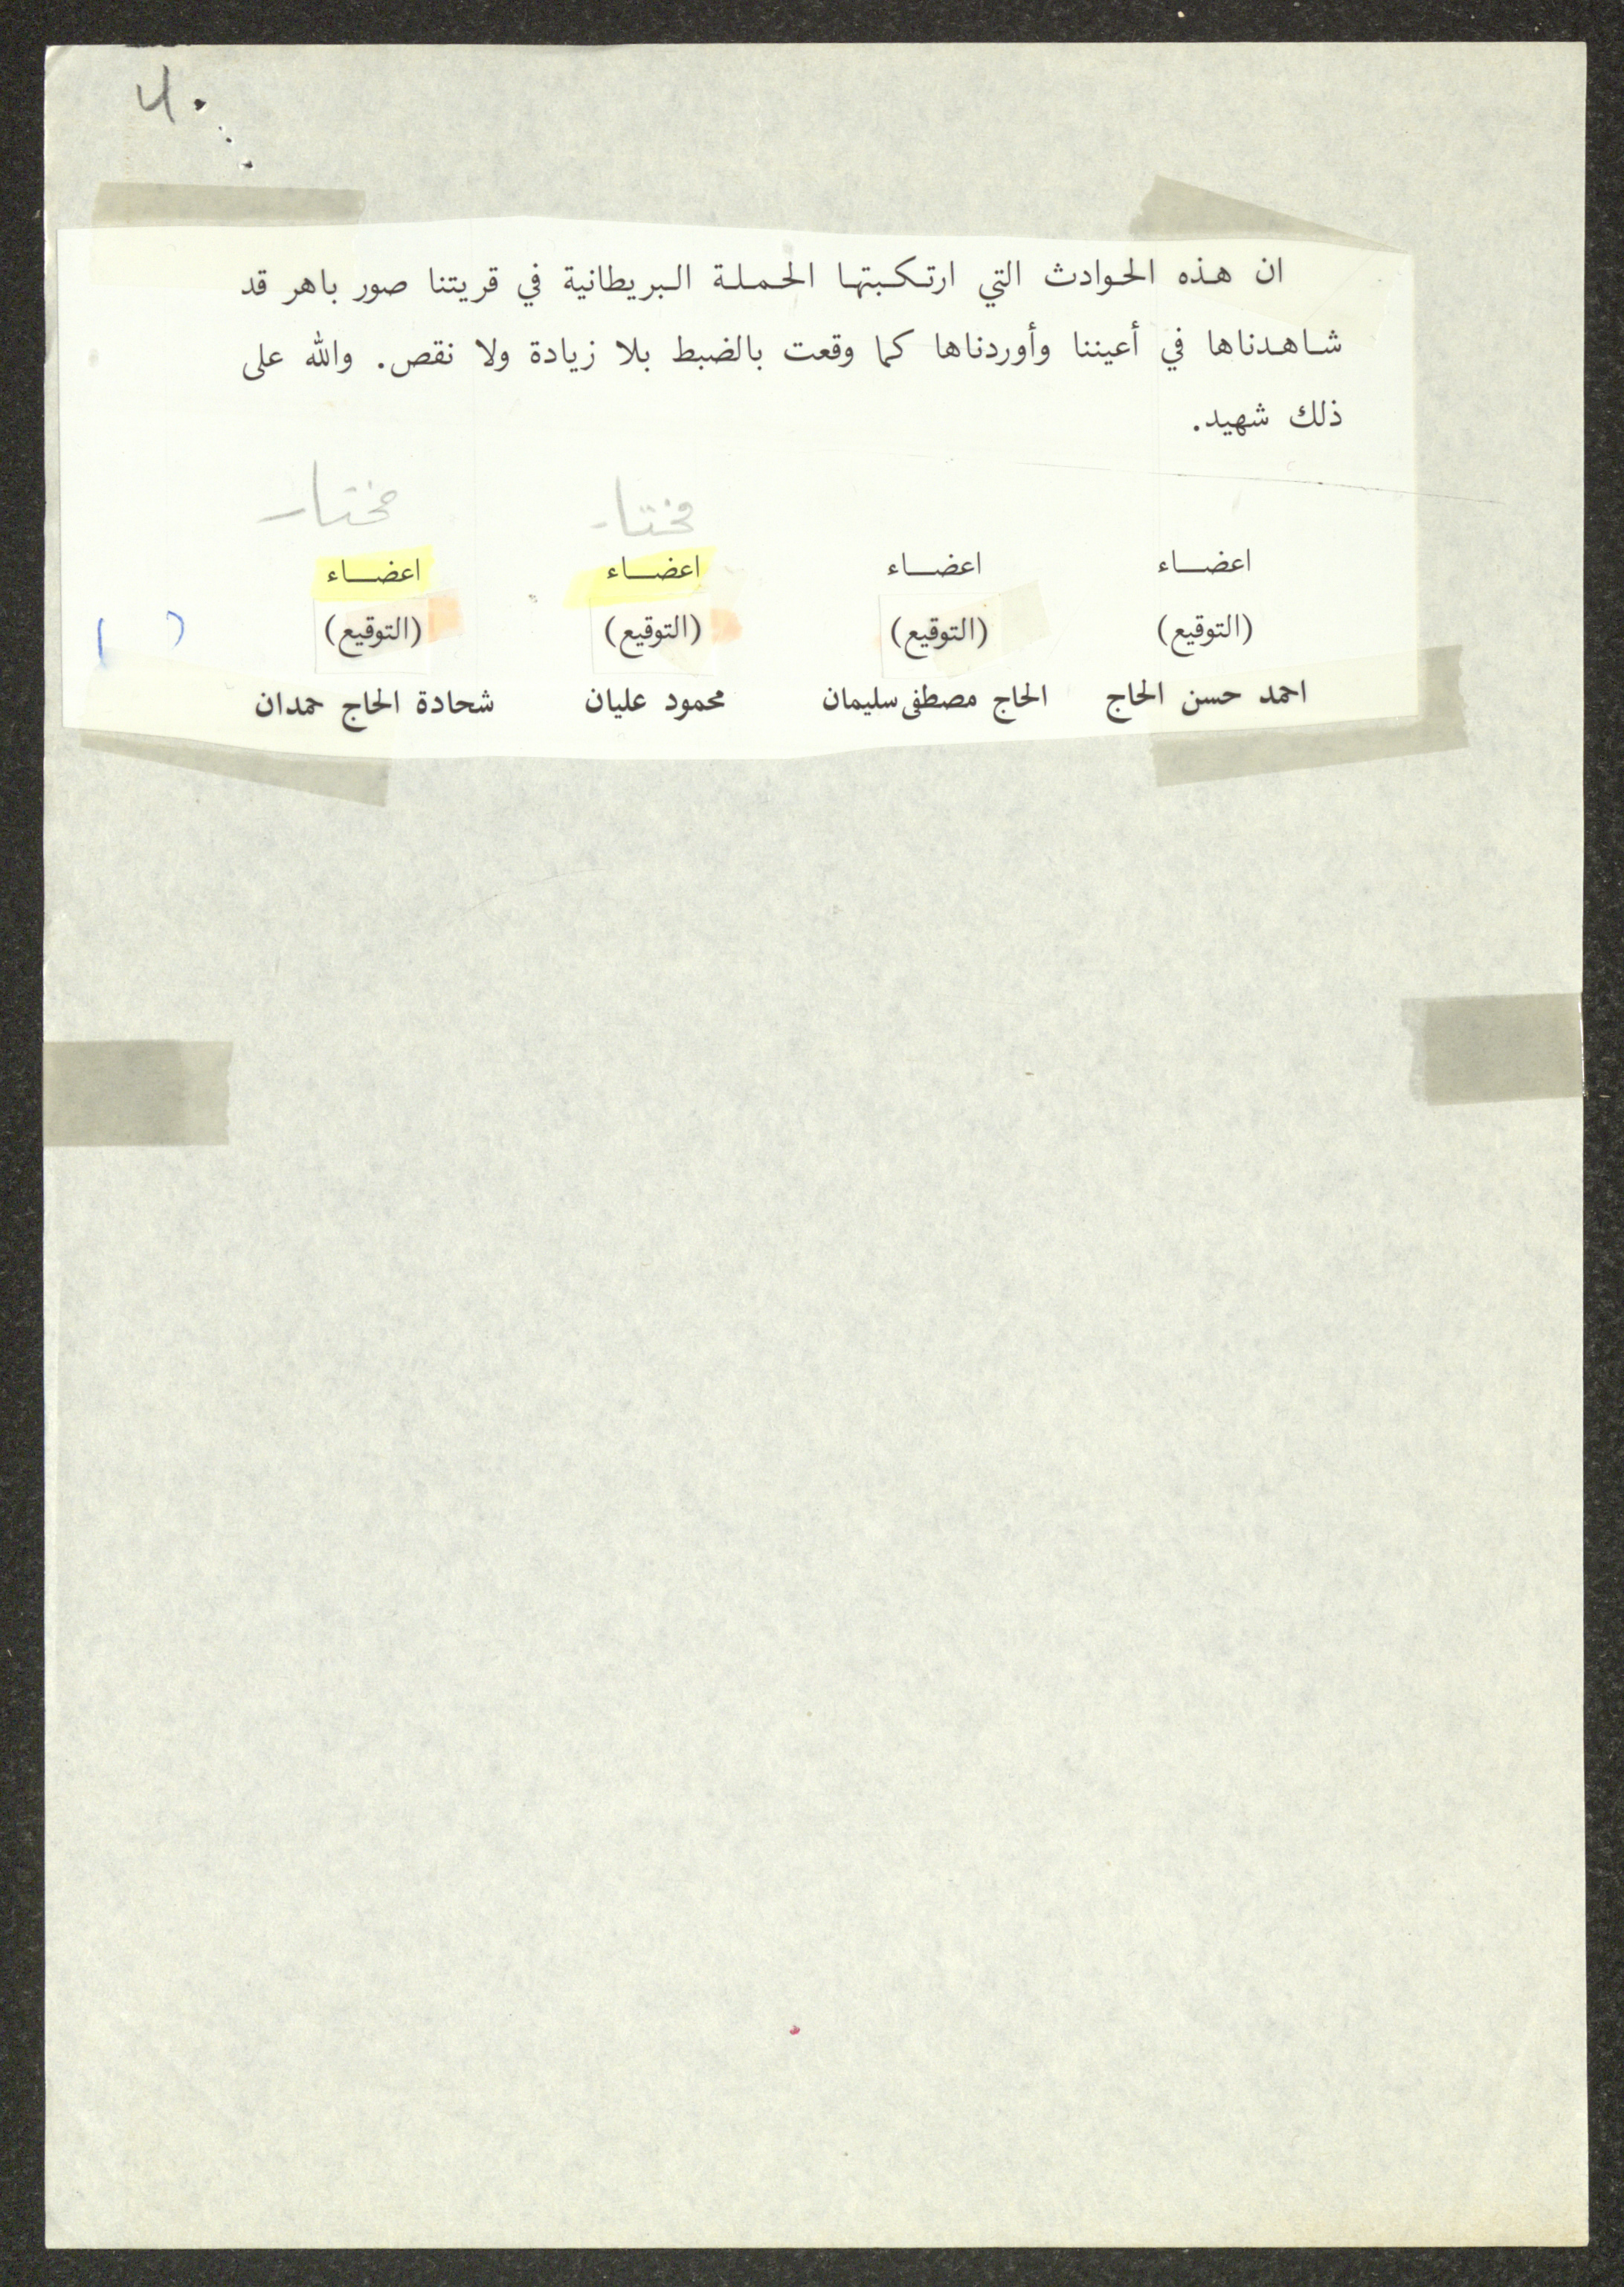 ان هذه الحوادث التي ارتكبتها الحملة البريطانية في قريتنا صور باهر قد
شاهدناها في أعيننا وأوردناها كما وقعت بالضبط بلا زيادة ولا نقص. والله على
ذلك شهيد.
مختار مختار
اعضاء اعضاء اعضاء اعضاء
(التوقيع) (التوقيع) (التوقيع) (التوقيع)
احمد حسن الحاج الحاج مصطفى سليمان محمود عليان شحادة الحاج حمدان